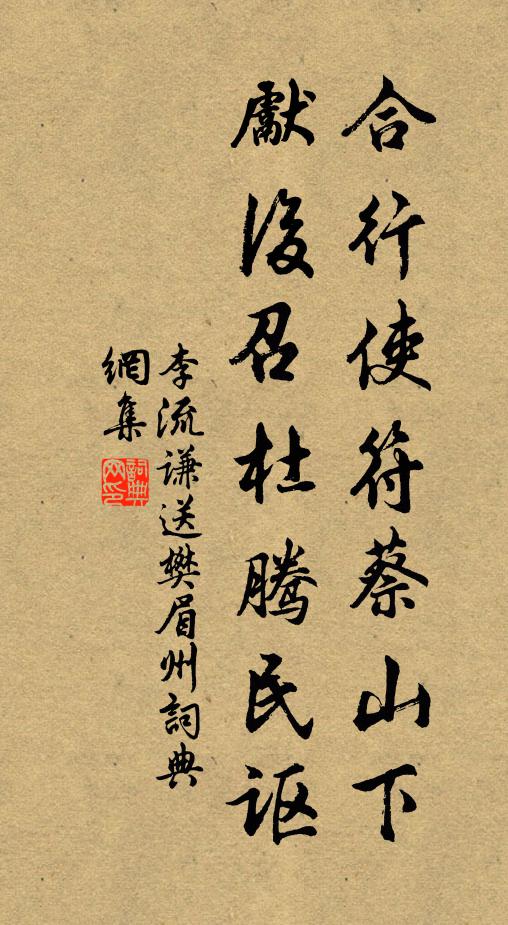 合行使符蔡山下
獻后召杜騰民讴
李流謙送樊眉州詞典
網集
詞典網印